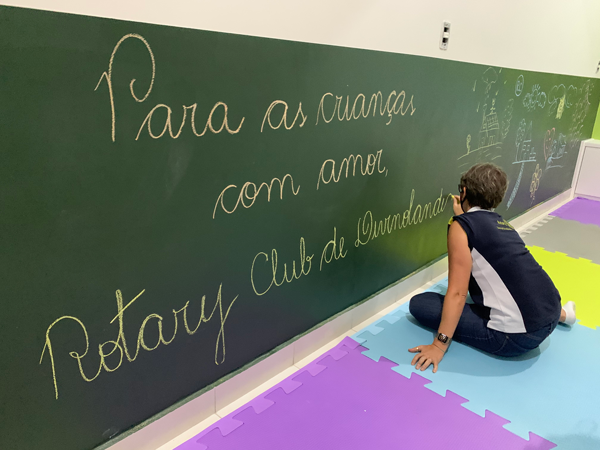 Para as crianças
com amor,
Rotary Club de Divinolandi